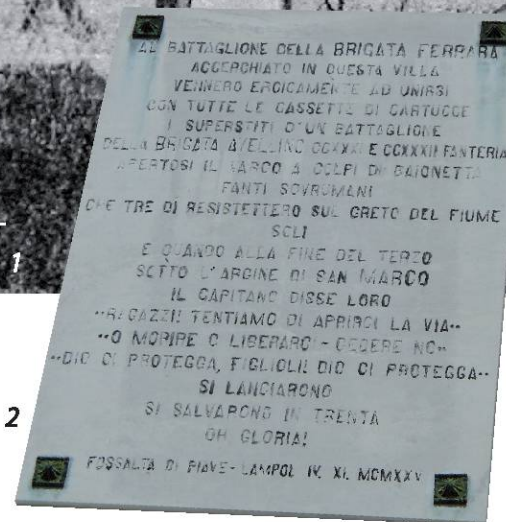 AL BATTAGLIONE DELLA BRIGATA FERRARA
ACCERCHIATO IN QUESTA VILLA
VENNERO EROICAMENTE AD UNIRSI
CON TUTTE LE CASSETTE DI CARTUCCE
I SUPERSTITI D'UN BATTAGLIONE
DELLA BRIGATA AVELLINO CCXXXI E CCXXXII FANTERIA
APERTOSI IL VARCO A COLPI DI BAIONETTA
FANTI SOVRUMANI
CHE TRE DI RESISTETTERO SUL GRETO DEL FIUME
SOLI
E QUANDO ALLA FINE DEL TERZO
SOTTO L'ARGINE DI SAN MARCO
IL CAPITANO DISSE LORO
"RAGAZZI! TENTIAMO DI APRIRCI LA VIA"
"O MORIRE O LIBERARCI - CEDERE NO"
"DIO CI PROTEGGA, FIGLIOLI! DIO CI PROTEGGA"
SI LANCIARONO
SI SALVARONO IN TRENTA
OH GLORIA!
FOSSALTA DI PIAVE - LAMPOL IV. XI. MCMXXV
1
2